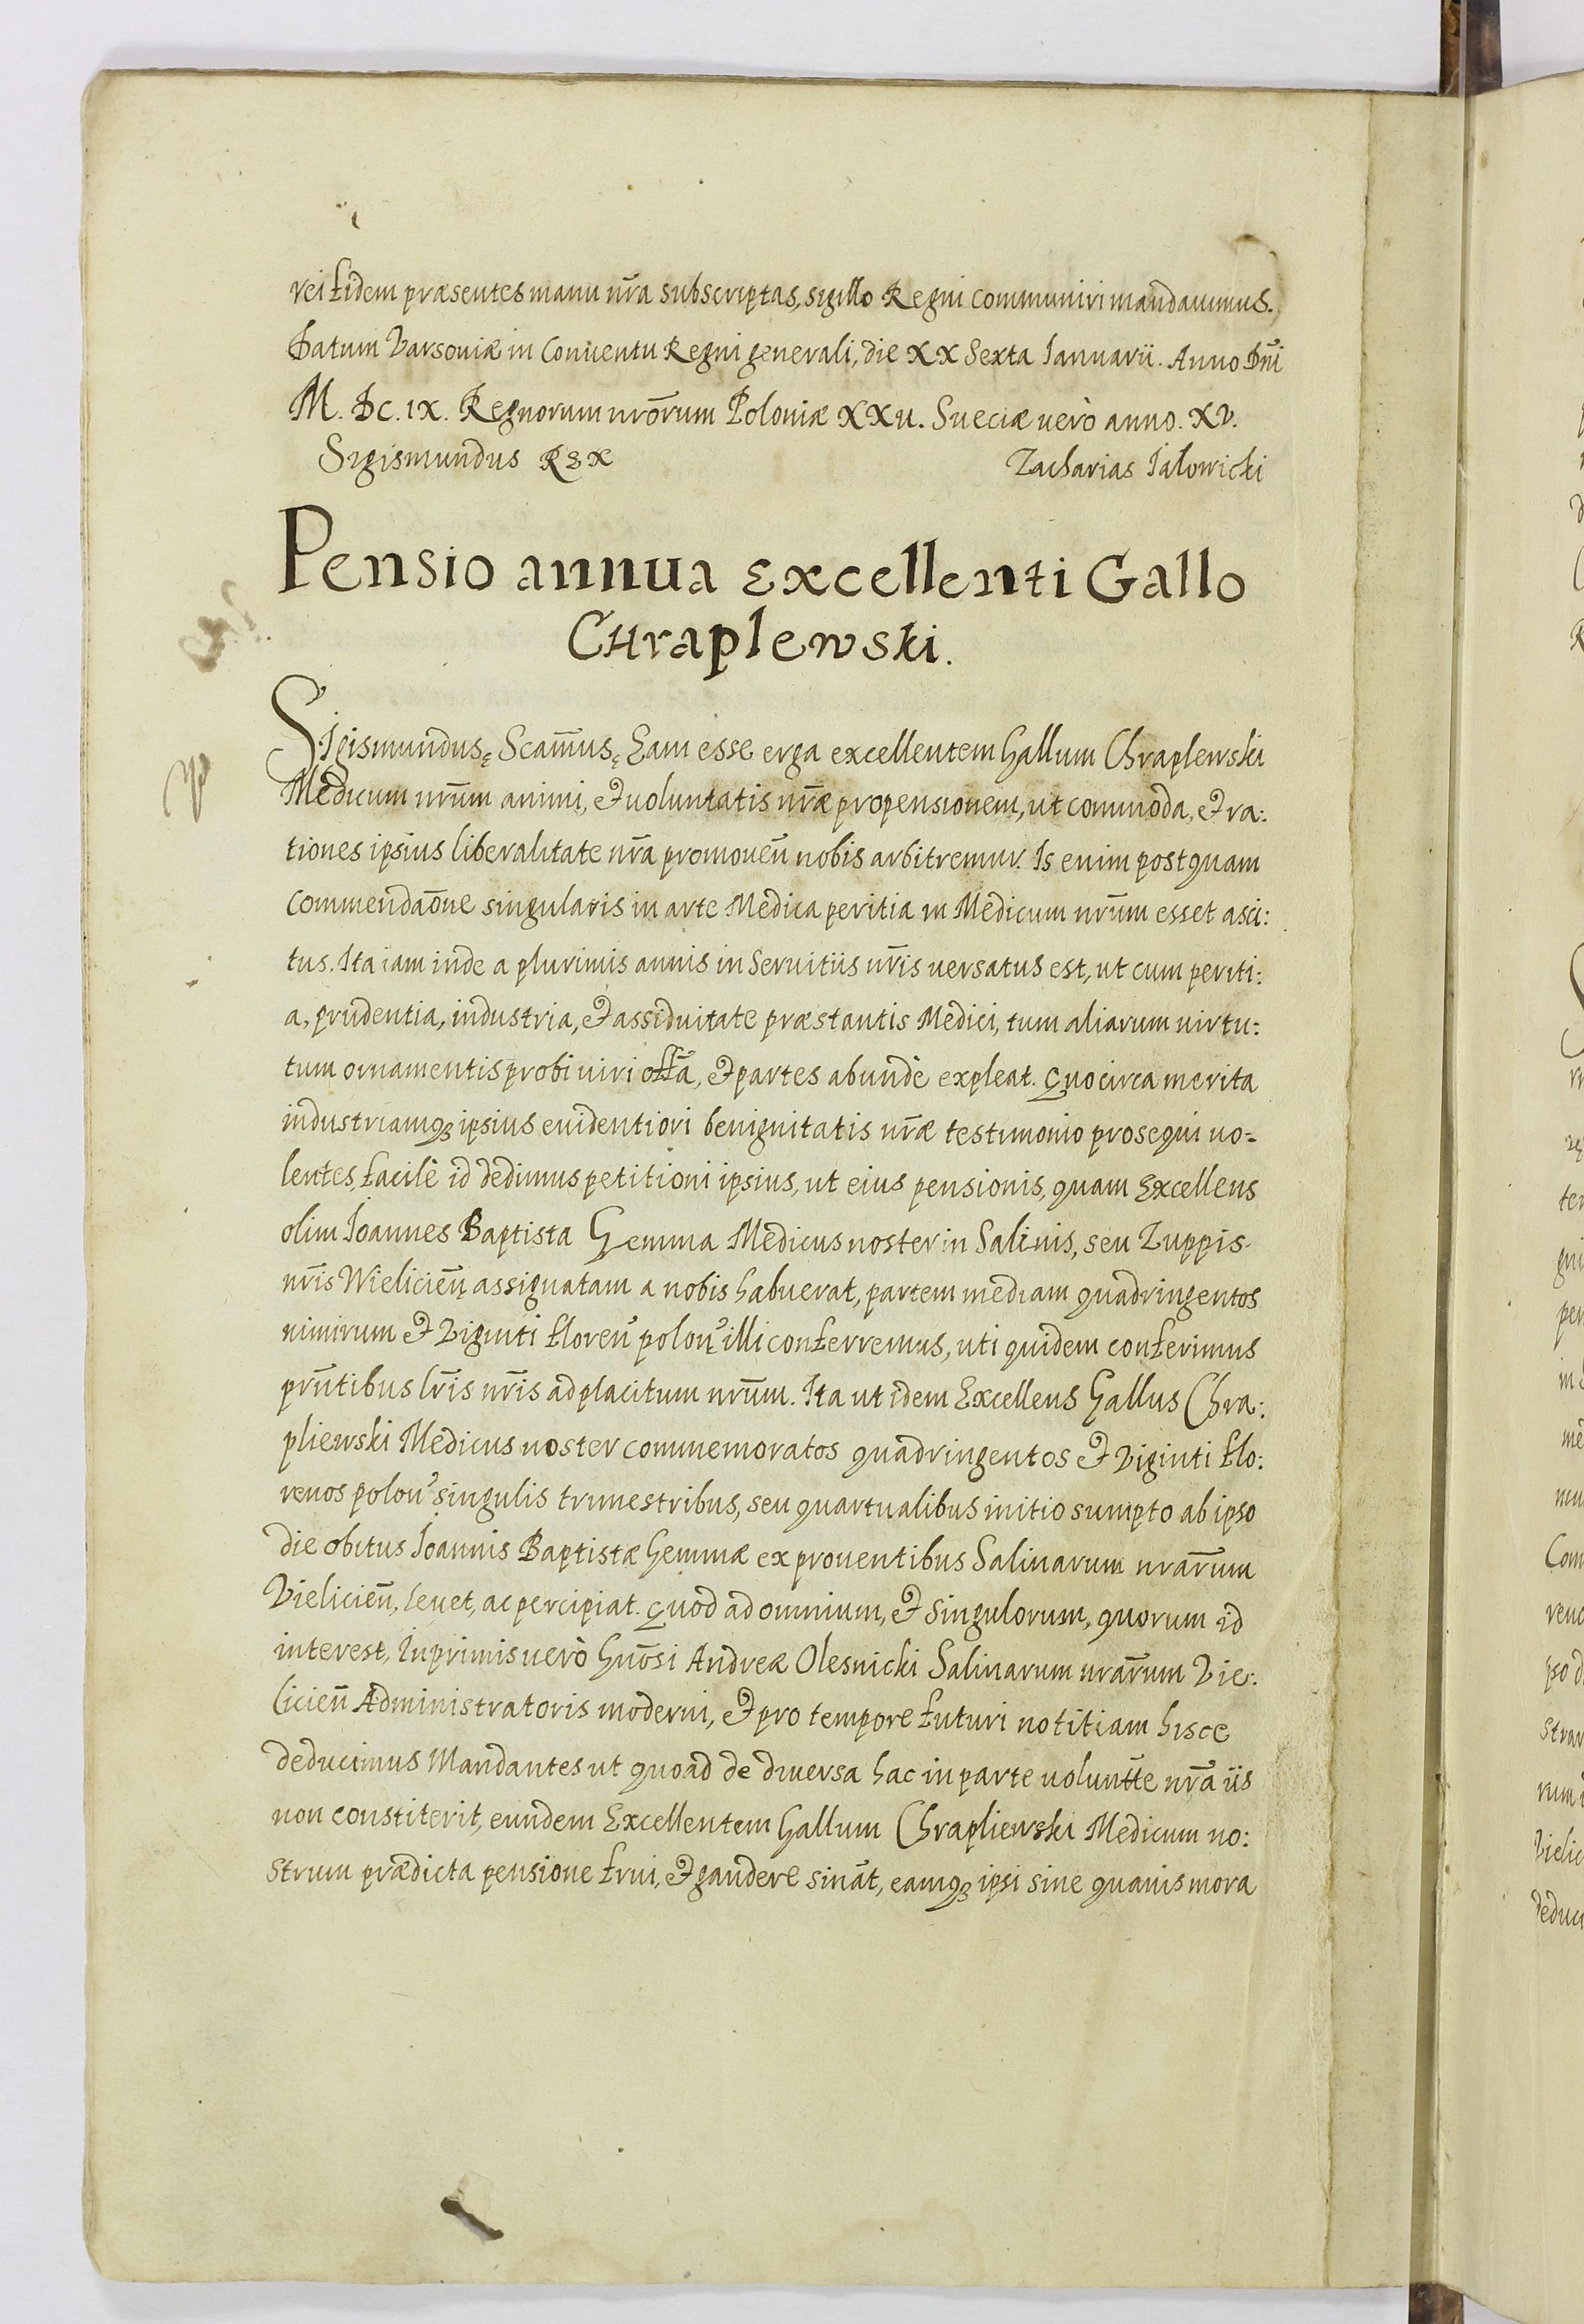 rei fidem præsentes manu nr̃a subscriptas, sigillo Regni communiri mandauimus.
Datum Varsoviæ in Conuentu Regni generali, die XX Sexta Ianuarii. Anno Dñi
M. DC. IX. Regnorum nrõrum Poloniæ XXII. Sueciæ uerò anno. XV.
Sigismundus REX Zacharias Iałowicki
Pensio annua Excellenti Gallo
CHraplewski.
Sigismundusę Scam̃usę Eam esse erga excellentem Gallum Chraplewski
Medicum nrũm animi, et uoluntatis nr̃æ propensionem, ut commoda, et ra:
tiones ipsius liberalitate nr̃a promouen̄ nobis arbitremur. Is enim postquam
commendaõne singularis in arte Medica peritia in Medicum nrũm esset asci:
tus. Ita iam inde a plurimis annis in Seruitiis nr̃is uersatus est, ut cum periti:
a, prudentia, industria, et assiduitate præstantis Medici, tum aliarum uirtu:
tum ornamentis probi uiri offã, et partes abundè expleat. Quocirca merita
industriamq3 ipsius euidentiori benignitatis nr̃æ testimonio prosequi uo=
lentes, facilè id dedimus petitioni ipsius, ut eius pensionis, quam Excellens
olim Ioannes Baptista Gemma Medicus noster in Salinis, seu Zuppis
nr̃is Wieliciēn assignatam a nobis habuerat, partem mediam quadringentos
nimirum et Viginti floren̄ polon̄ illi conferremus, uti quidem conferimus
prñtibus lr̃is nr̃is ad placitum nrũm. Ita ut idem Excellens Gallus Chra:
pliewski Medicus noster commemoratos quadringentos et Viginti flo:
renos polon̄ singulis trimestribus, seu quartualibus initio sumpto ab ipso
die obitus Ioannis Baptistæ Gemmæ ex prouentibus Salinarum nrãrum
Vieliciēn, leuet, ac percipiat. Quod ad omnium, et singulorum, quorum id
interest, Inprimis uerò Gnõsi Andreæ Olesnicki Salinarum nrãrum Vie:
liciēn Administratoris moderni, et pro tempore futuri notitiam hisce
deducimus Mandantes ut quoad de diuersa hac in parte uoluntt̃e nr̃a iis
non constiterit, eundem Excellentem Gallum Chrapliewski Medicum no:
strum prædicta pensione frui, et gaudere sinãt, eamq3 ipsi sine quauis mora